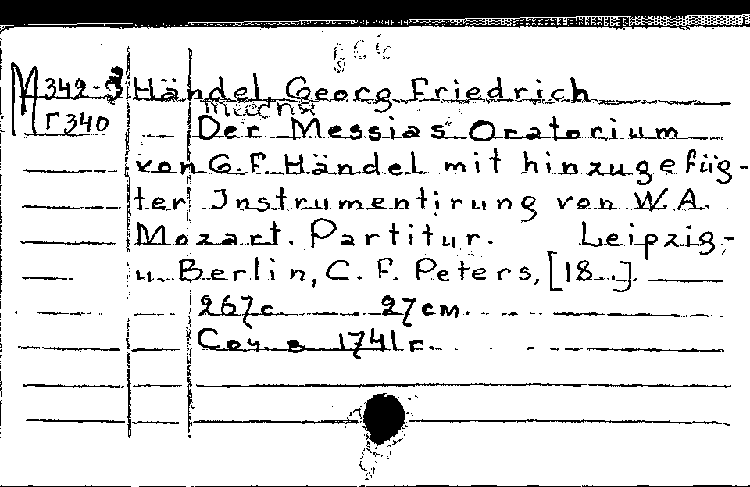 М 342-9 Händel, Georg Friedrich
Г 340
Der Messias Oratorium
von G. F. Händel mit hinzugefüg-
ter Instrumentirung von W. A.
Mozart. Partitur. Leipzig-
u. Berlin, C. F. Peters, [18..]
267 с 27 см.
Соч. в 1741 г.